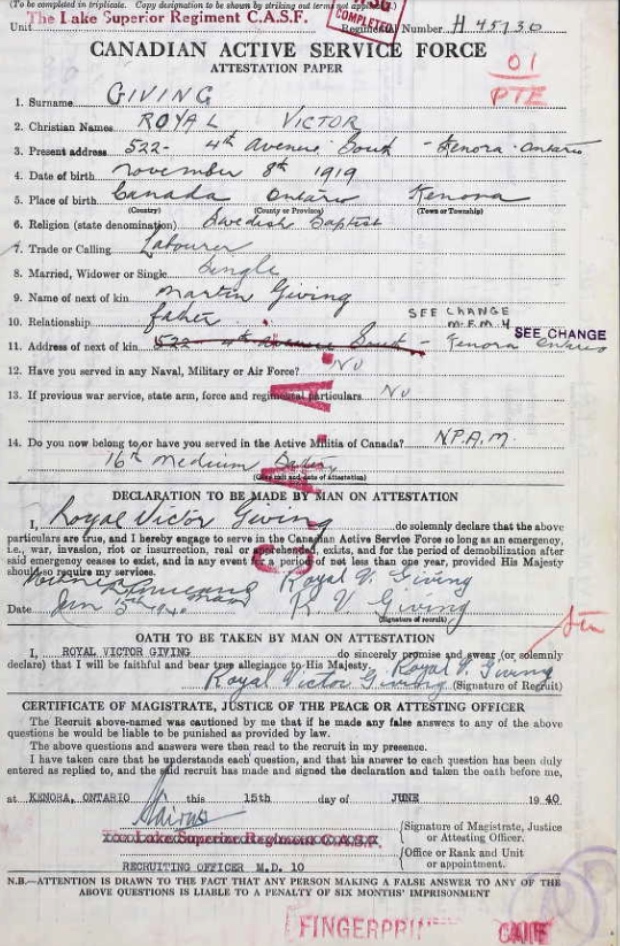 (To be completed in triplicate. Copy designation to be shown by striking out terms not applicable.)
Unit The Lake Superior Regiment C.A.S.F. Regimental Number H 45730
COMPLETED
CANADIAN ACTIVE SERVICE FORCE
ATTESTATION PAPER
01
PTE
1. Surname GIVING
2. Christian Names ROYAL VICTOR
3. Present address 522- 4th Avenue South - Kenora - Ontario
4. Date of birth november 8th 1919
5. Place of birth Canada Ontario Kenora
(Country) (County or Province) (Town or Township)
6. Religion (state denomination) Swedish Baptist
7. Trade or Calling Labourer
8. Married, Widower or Single Single
9. Name of next of kin Martin Giving
10. Relationship father SEE CHANGE
M.F.M. 4 SEE CHANGE
11. Address of next of kin 522 4th Avenue South - Kenora Ontario
12. Have you served in any Naval, Military or Air Force? No
13. If previous war service, state arm, force and regimental particulars No
14. Do you now belong to or have you served in the Active Militia of Canada? N.P.A.M.
16th Medium Battery
(Give unit and date of attestation)
DECLARATION TO BE MADE BY MAN ON ATTESTATION
I, Royal Victor Giving do solemnly declare that the above
particulars are true, and I hereby engage to serve in the Canadian Active Service Force so long as an emergency,
i.e., war, invasion, riot or insurrection, real or apprehended, exists, and for the period of demobilization after
said emergency ceases to exist, and in any event for a period of not less than one year, provided His Majesty
should so require my services.
Royal V. Giving
Date R. V. Giving
(Signature of recruit)
OATH TO BE TAKEN BY MAN ON ATTESTATION
I, ROYAL VICTOR GIVING do sincerely promise and swear (or solemnly
declare) that I will be faithful and bear true allegiance to His Majesty. Royal V. Giving
Royal Victor Giving (Signature of Recruit)
CERTIFICATE OF MAGISTRATE, JUSTICE OF THE PEACE OR ATTESTING OFFICER
The Recruit above-named was cautioned by me that if he made any false answers to any of the above
questions he would be liable to be punished as provided by law.
The above questions and answers were then read to the recruit in my presence.
I have taken care that he understands each question, and that his answer to each question has been duly
entered as replied to, and the said recruit has made and signed the declaration and taken the oath before me,
at KENORA, ONTARIO this 15th day of JUNE 1940
{Signature of Magistrate, Justice
or Attesting Officer.
Lake Superior Regiment C.A.S.F.
{Office or Rank and Unit
or appointment.
RECRUITING OFFICER M.D. 10
N.B.—ATTENTION IS DRAWN TO THE FACT THAT ANY PERSON MAKING A FALSE ANSWER TO ANY OF THE
ABOVE QUESTIONS IS LIABLE TO A PENALTY OF SIX MONTHS' IMPRISONMENT